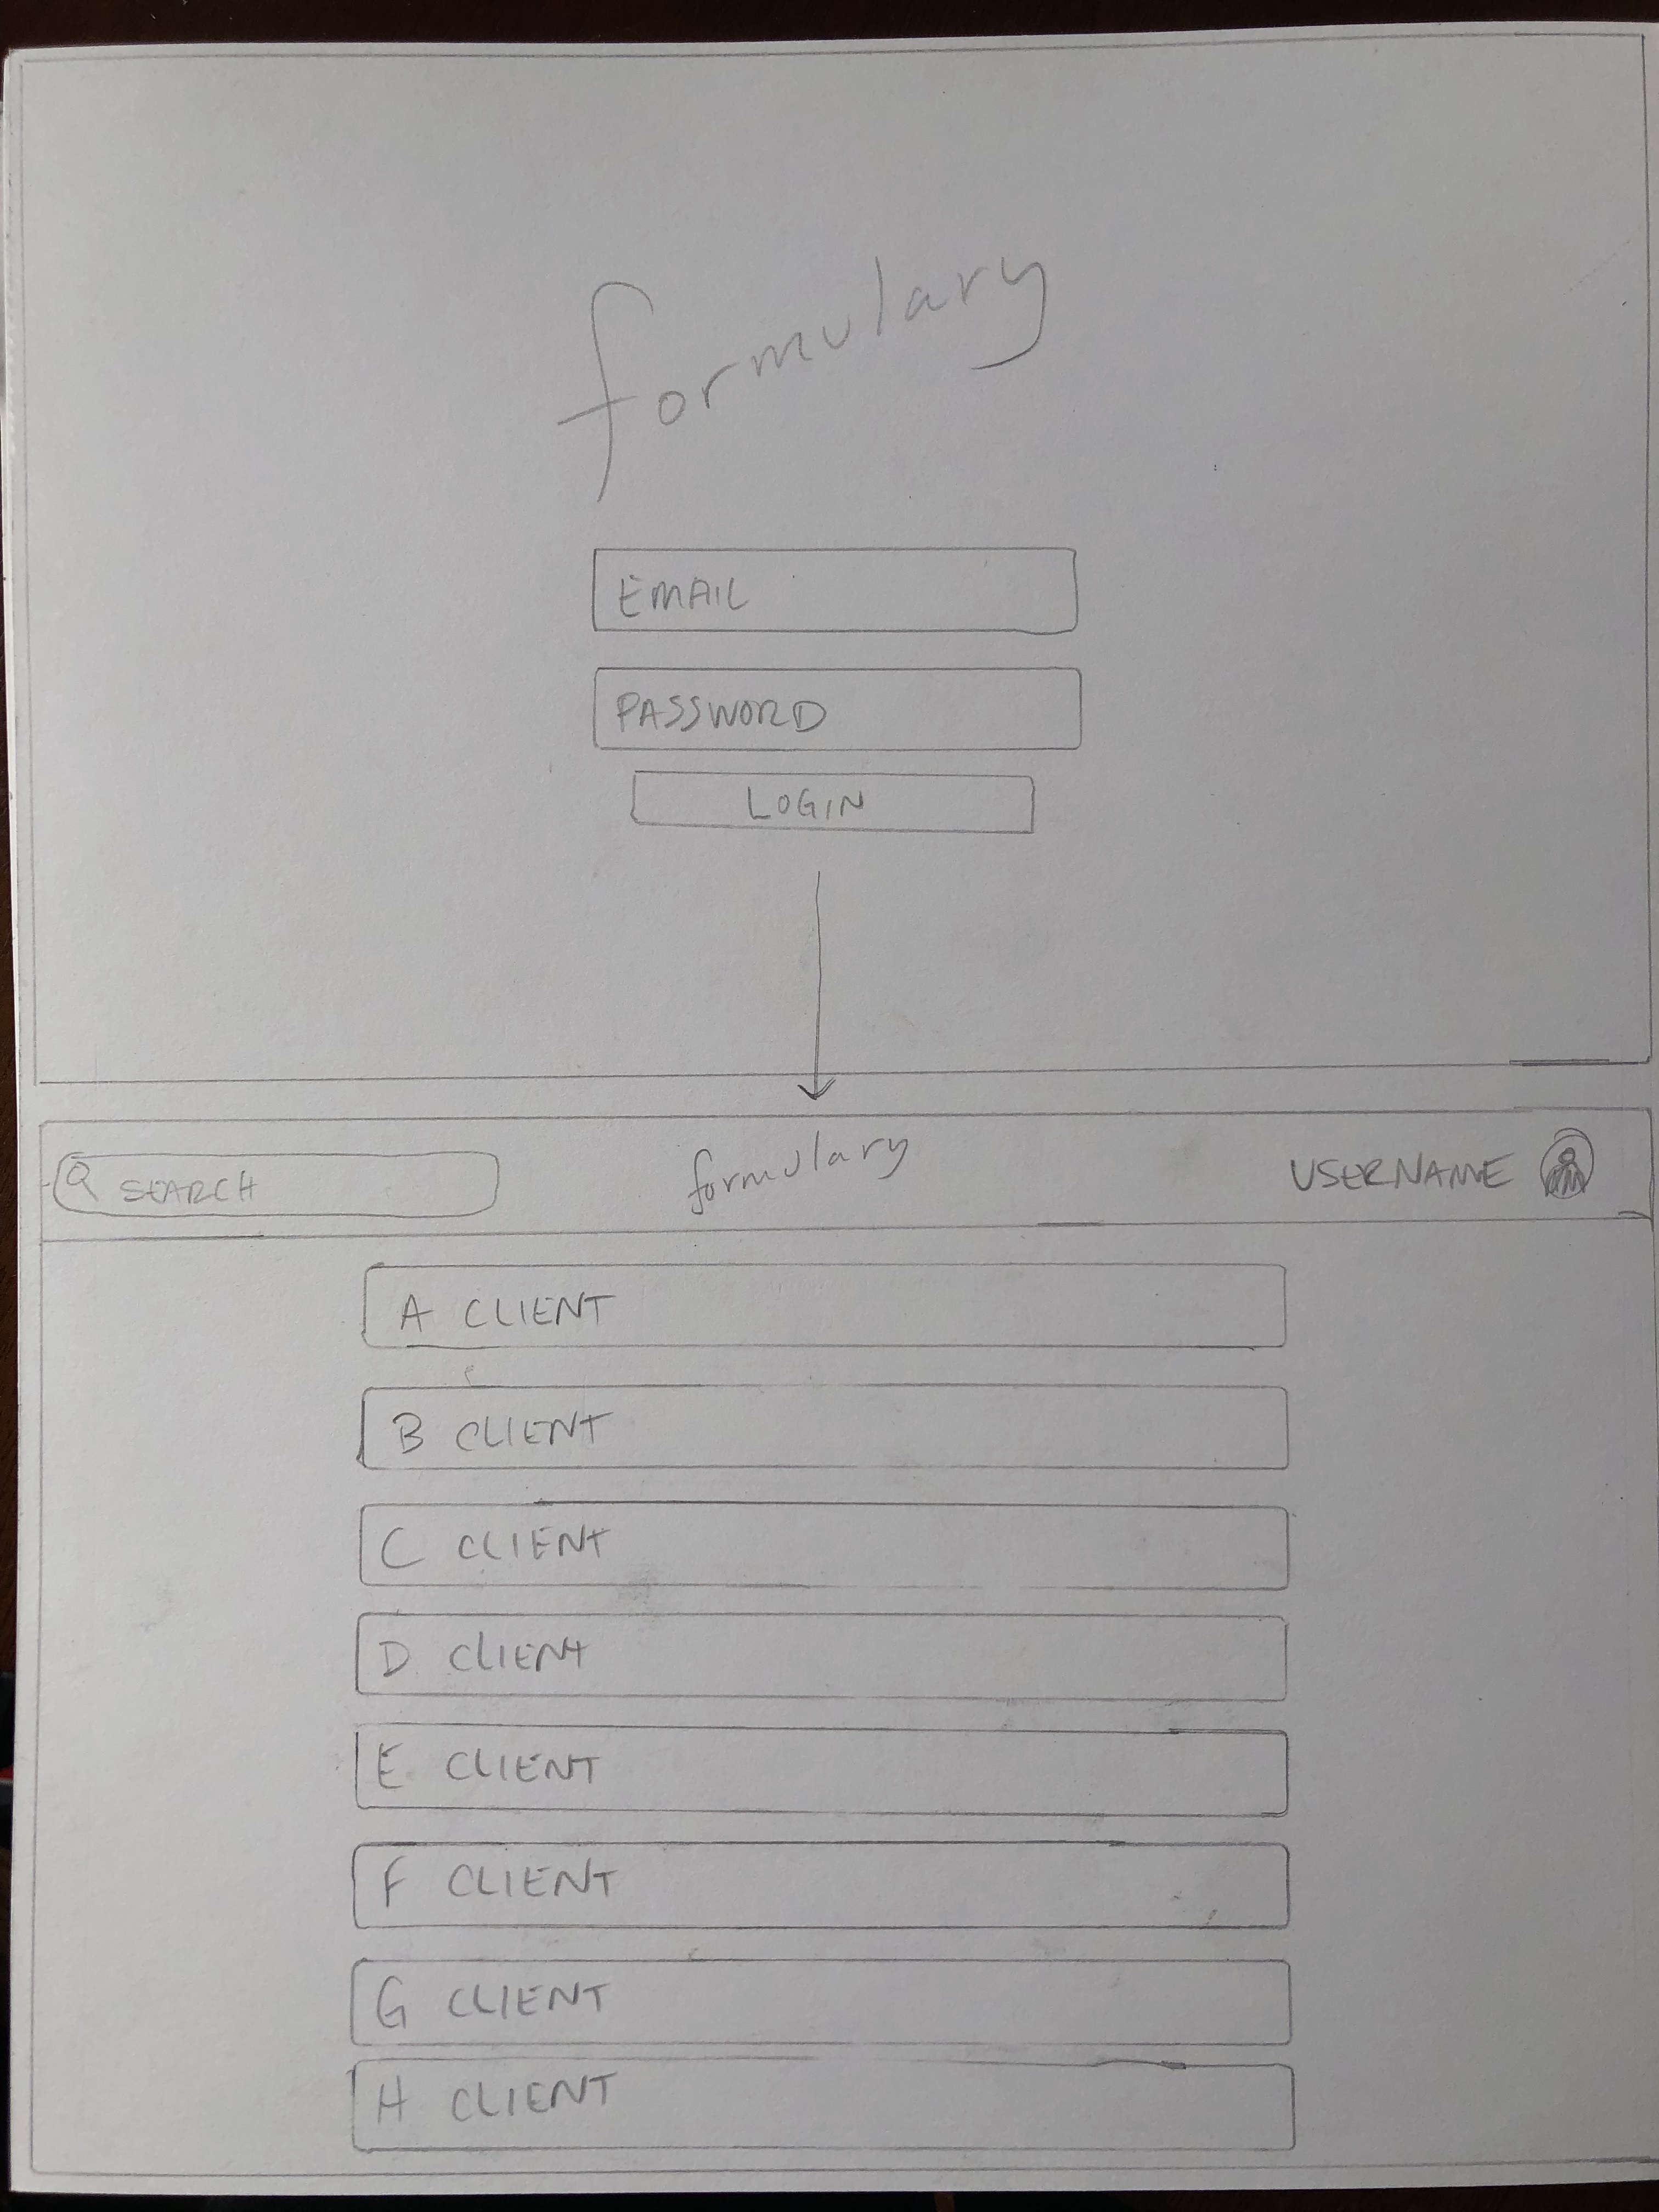 formulary
EMAIL
PASSWORD
LOGIN
SEARCH
formulary
USERNAME
A CLIENT
B CLIENT
C CLIENT
D CLIENT
E CLIENT
F CLIENT
G CLIENT
H CLIENT